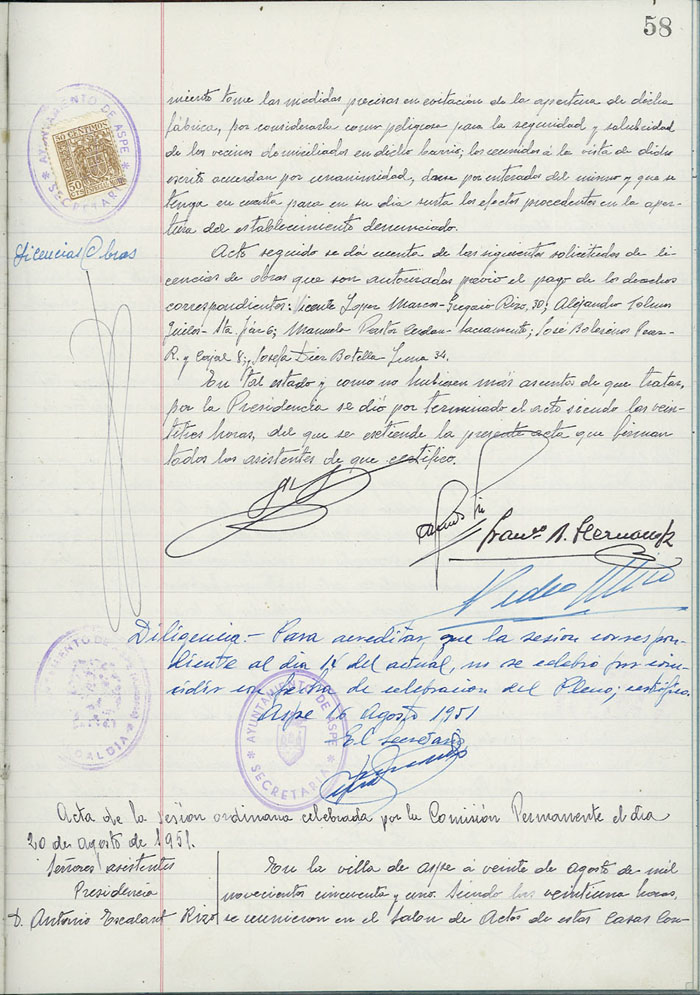 58
miento tome las medidas precisas en evitación de la apertura de dicha
fábrica, por considerarla como peligrosa para la seguridad y salubridad
de los vecinos domiciliados en dicho barrio; los reunidos á la vista de dicho
escrito acuerdan por unanimidad, darse por enterados del mismo y que se
tenga en cuenta para en su dia surta los efectos procedentes en la aper-
tura del establecimiento denunciado.
AYUNTAMIENTO DE ASPE
SECRETARIA
50 CENTIMOS
50
Licencias Obras
Acto seguido se dá cuenta de las siguientes solicitudes de li-
cencias de obras que son autorizadas previo el pago de los derechos
correspondientes: Vicente Lopez Marcos - Gregorio Rizo, 30; Alejandro
Sta. 6; Manuela Pastor Cerdan - Sacramento; José
R. y Cajal 8; Josefa Diez Botella Luna 34.
En tal estado y como no hubiesen más asuntos de que tratar,
por la Presidencia se dió por terminado el acto siendo las vein-
titrés horas, del que se extiende la presente acta que firman
todos los asistentes de que certifico.
Franco B. Hernandez
Pedro
Diligencia.- Para acreditar, que la sesión corres pon-
diente al dia 14 del actual, no se celebró por coin-
cidir con fecha de celebracion del Pleno; certifico.
Aspe 16 Agosto 1951
El Secretario
AYUNTAMIENTO DE ASPE
ALCALDIA
AYUNTAMIENTO DE ASPE
SECRETARIA
Acta de la sesión ordinaria celebrada por la Comisión Permanente el dia
20 de agosto de 1951.
Señores asistentes
Presidencia
D. Antonio Escalant Rizo
En la villa de Aspe á veinte de agosto de mil
novecientos cincuenta y uno. Siendo las veintiuna horas,
se reunieron en el Salon de Actos de estas Casas Con-